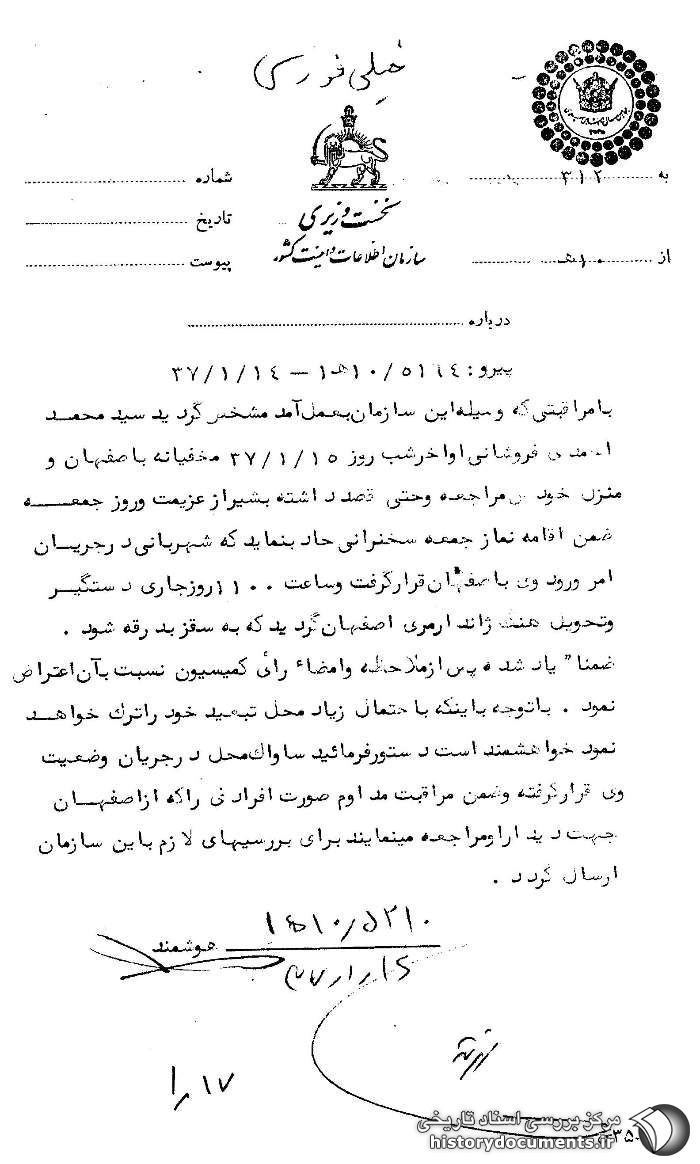 خیلی فوری
به ۳۱۲
شماره
نخست وزیری
تاریخ
سازمان اطلاعات و امنیت کشور
از ۱۰ هـ
پیوست
درباره
پیرو : ۵۱۶۴/ ۱۰هـ۱ – ۳۷/۱/۱۴
بامراقبتی که وسیله این سازمان بعمل آمد مشخص گردید سید محمد
احمدی فروشانی اواخرشب روز ۳۷/۱/۱۵ مخفیانه باصفهان و
منزل خود مراجعه وحتی قصد داشته بشیراز عزیمت وروز جمعـــه
ضمن اقامه نماز جمعه سخنرانی حاد بنماید که شهربانی درجریــان
امر ورود وی باصفهان قرارگرفت وساعت ۱۱۰۰ روزجاری دستگیــر
وتحویل هنگ ژاندارمری اصفهان گردید که به سقز بدرقه شود .
ضمنا" یاد شده پس ازملاحظه وامضاء رأی کمیسیون نسبت بآن اعتراض
نمود . باتوجه باینکه باحتمال زیاد محل تبعید خود راترك خواهــد
نمود خواهشمند است دستورفرمائید ساواك محل درجریان وضعیت
وی قرارگرفته وضمن مراقبت مداوم صورت افرادی راکه ازاصفهــان
جهت دیدار اومراجعه مینمایند برای بررسیهای لازم باین سازمان
ارسال گردد .
۵۲۱۰/ ۱۰هـ۱
هوشمند
۳۷/۱/۱۶
۱۷/۱
مرکز بررسی اسناد تاریخی
historydocuments.ir